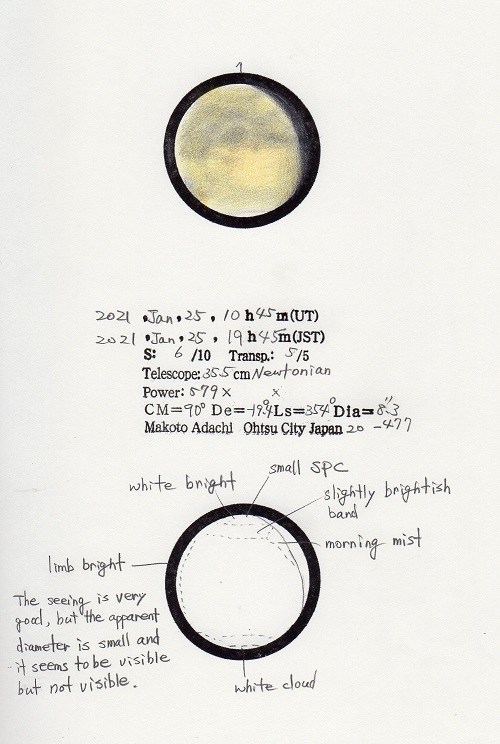 2021 , Jan, 25, 10 h 45 m(UT)
2021 , Jan, 25, 19 h 45 m(JST)
S: 6 /10 Transp.: 5/5
Telescope: 355 cm Newtonian
Power: 579 x x
CM=90° De=-19.4° Ls=354° Dia=8".3
Makoto Adachi Ohtsu City Japan 20 -477
small SPC
white bright
slightly brightish
band
morning mist
limb bright
The seeing is very
good, but the apparent
diameter is small and
it seems to be visible
but not visible.
white cloud